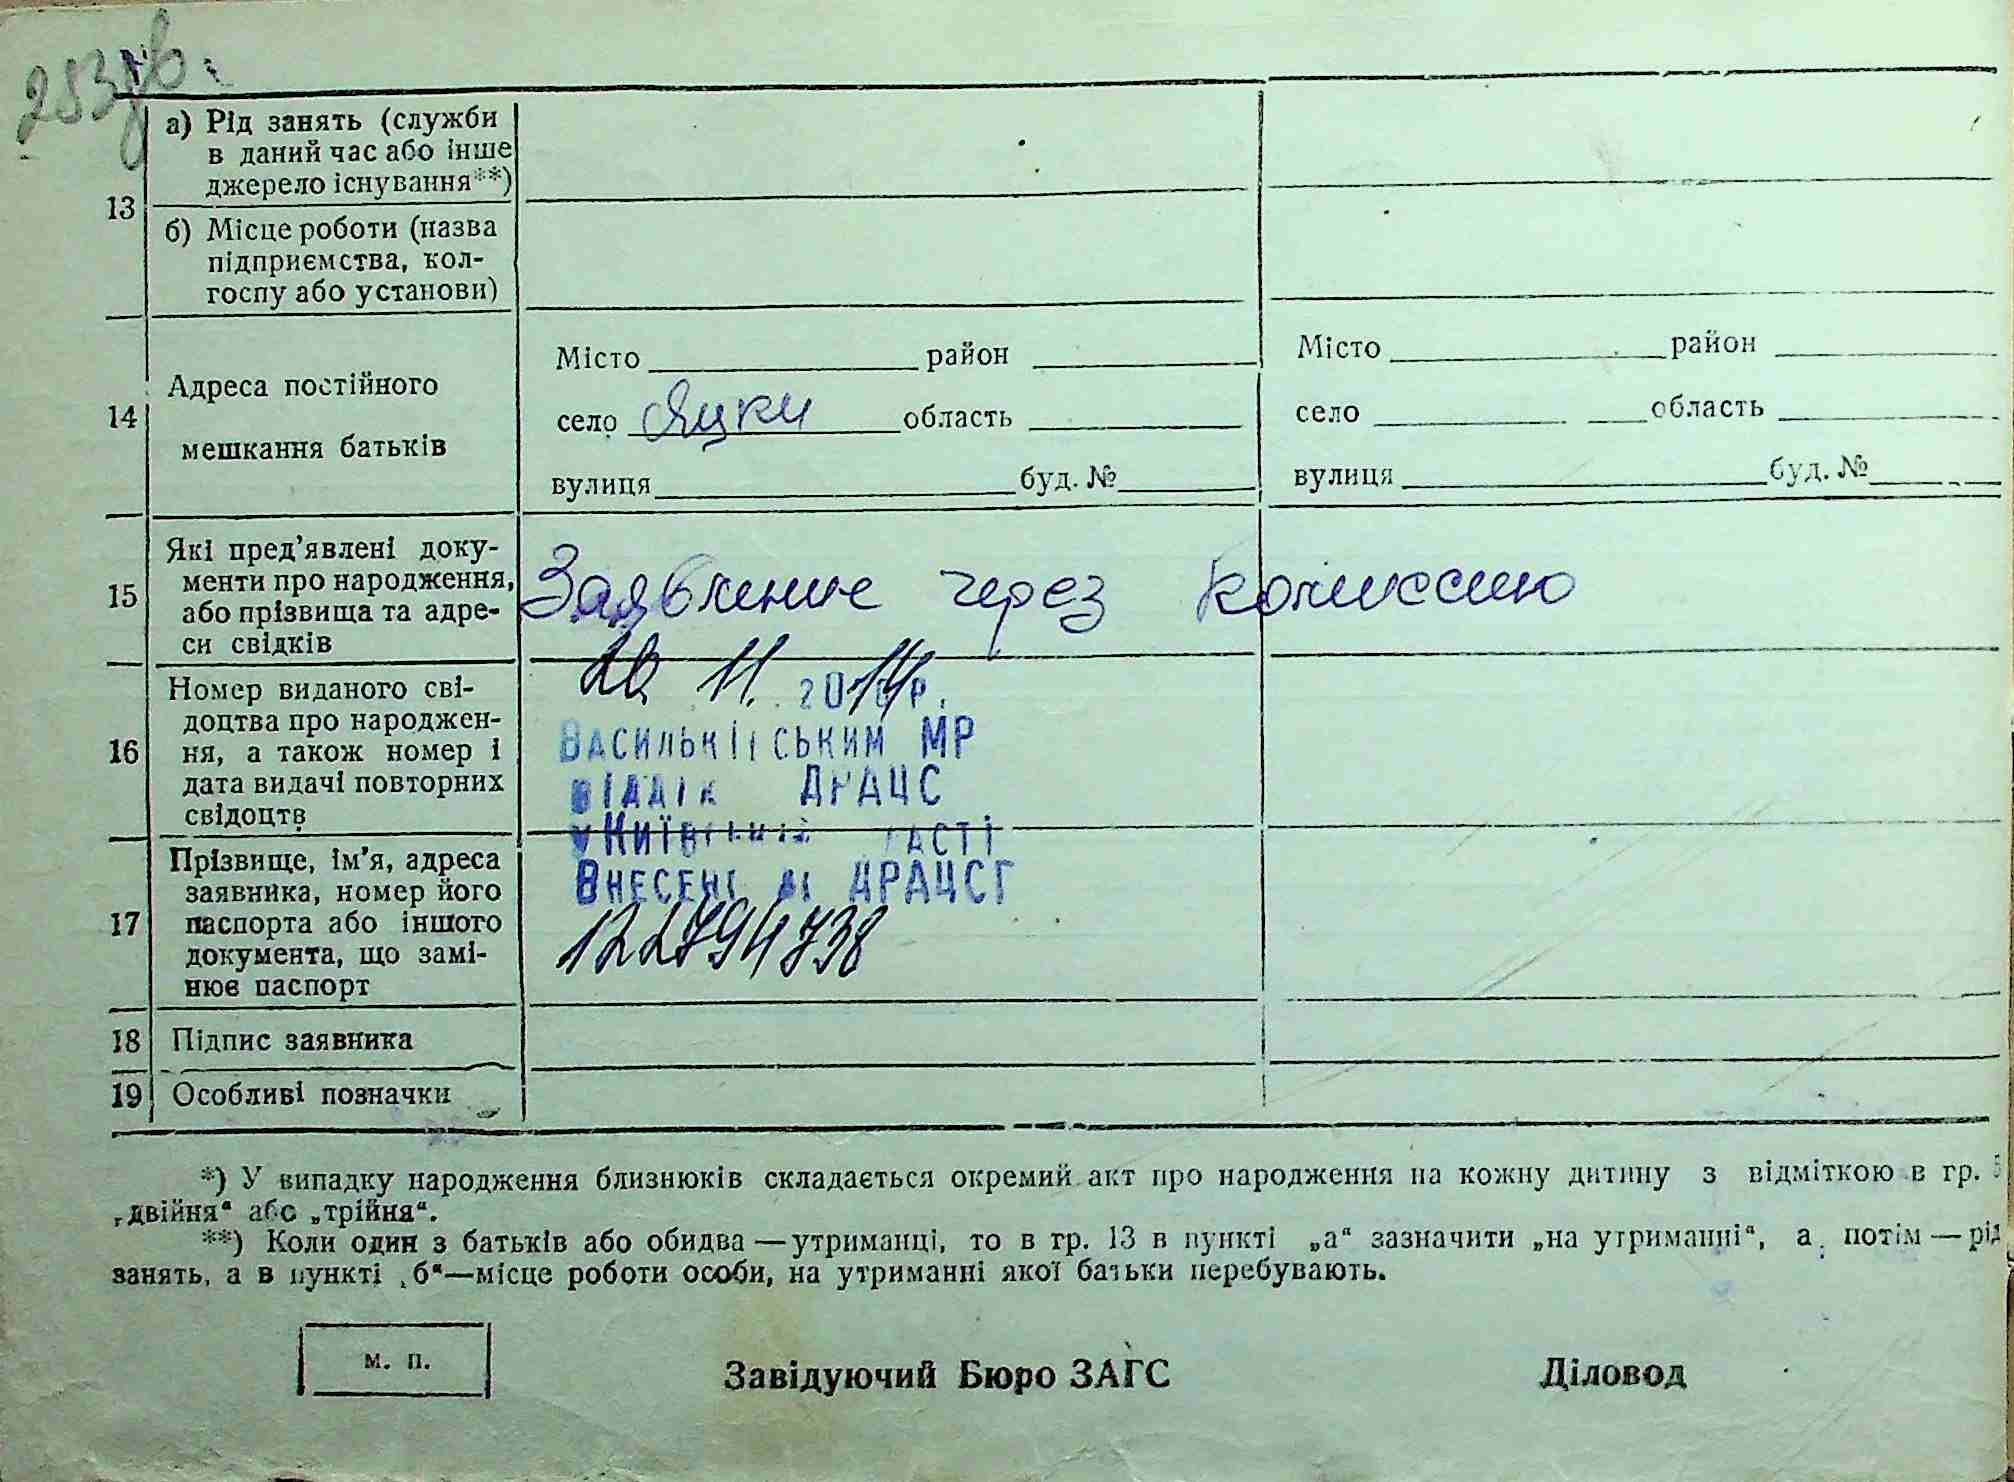 253зв.
13
а) Рід занять (служби
в даний час або інше
джерело існування**)
б) Місце роботи (назва
підприємства, кол-
госпу або установи)
14
Адреса постійного
мешкання батьків
Місто район
село Яцки область
вулиця буд. №
Місто район
село область
вулиця буд. №
15
Які пред’явлені доку-
менти про народження,
або прізвища та адре-
си свідків
Заявление через комиссию
16
Номер виданого сві-
доцтва про народжен-
ня, а також номер і
дата видачі повторних
свідоцтв
11. 2014р.
Васильківським МР
відділ ДРАЦС
у Київській області
Внесені ДРАЦСГ
122794738
17
Прізвище, ім’я, адреса
заявника, номер його
паспорта або іншого
документа, що замі-
нює паспорт
18 Підпис заявника
19 Особливі позначки
*) У випадку народження близнюків складається окремий акт про народження на кожну дитину з відміткою в гр. 5
„двійня“ або „трійня“.
**) Коли один з батьків або обидва — утриманці, то в гр. 13 в пункті „а“ зазначити „на утриманні“, а потім — рід
занять, а в пункті „б“—місце роботи особи, на утриманні якої батьки перебувають.
м. п.
Завідуючий Бюро ЗАГС
Діловод